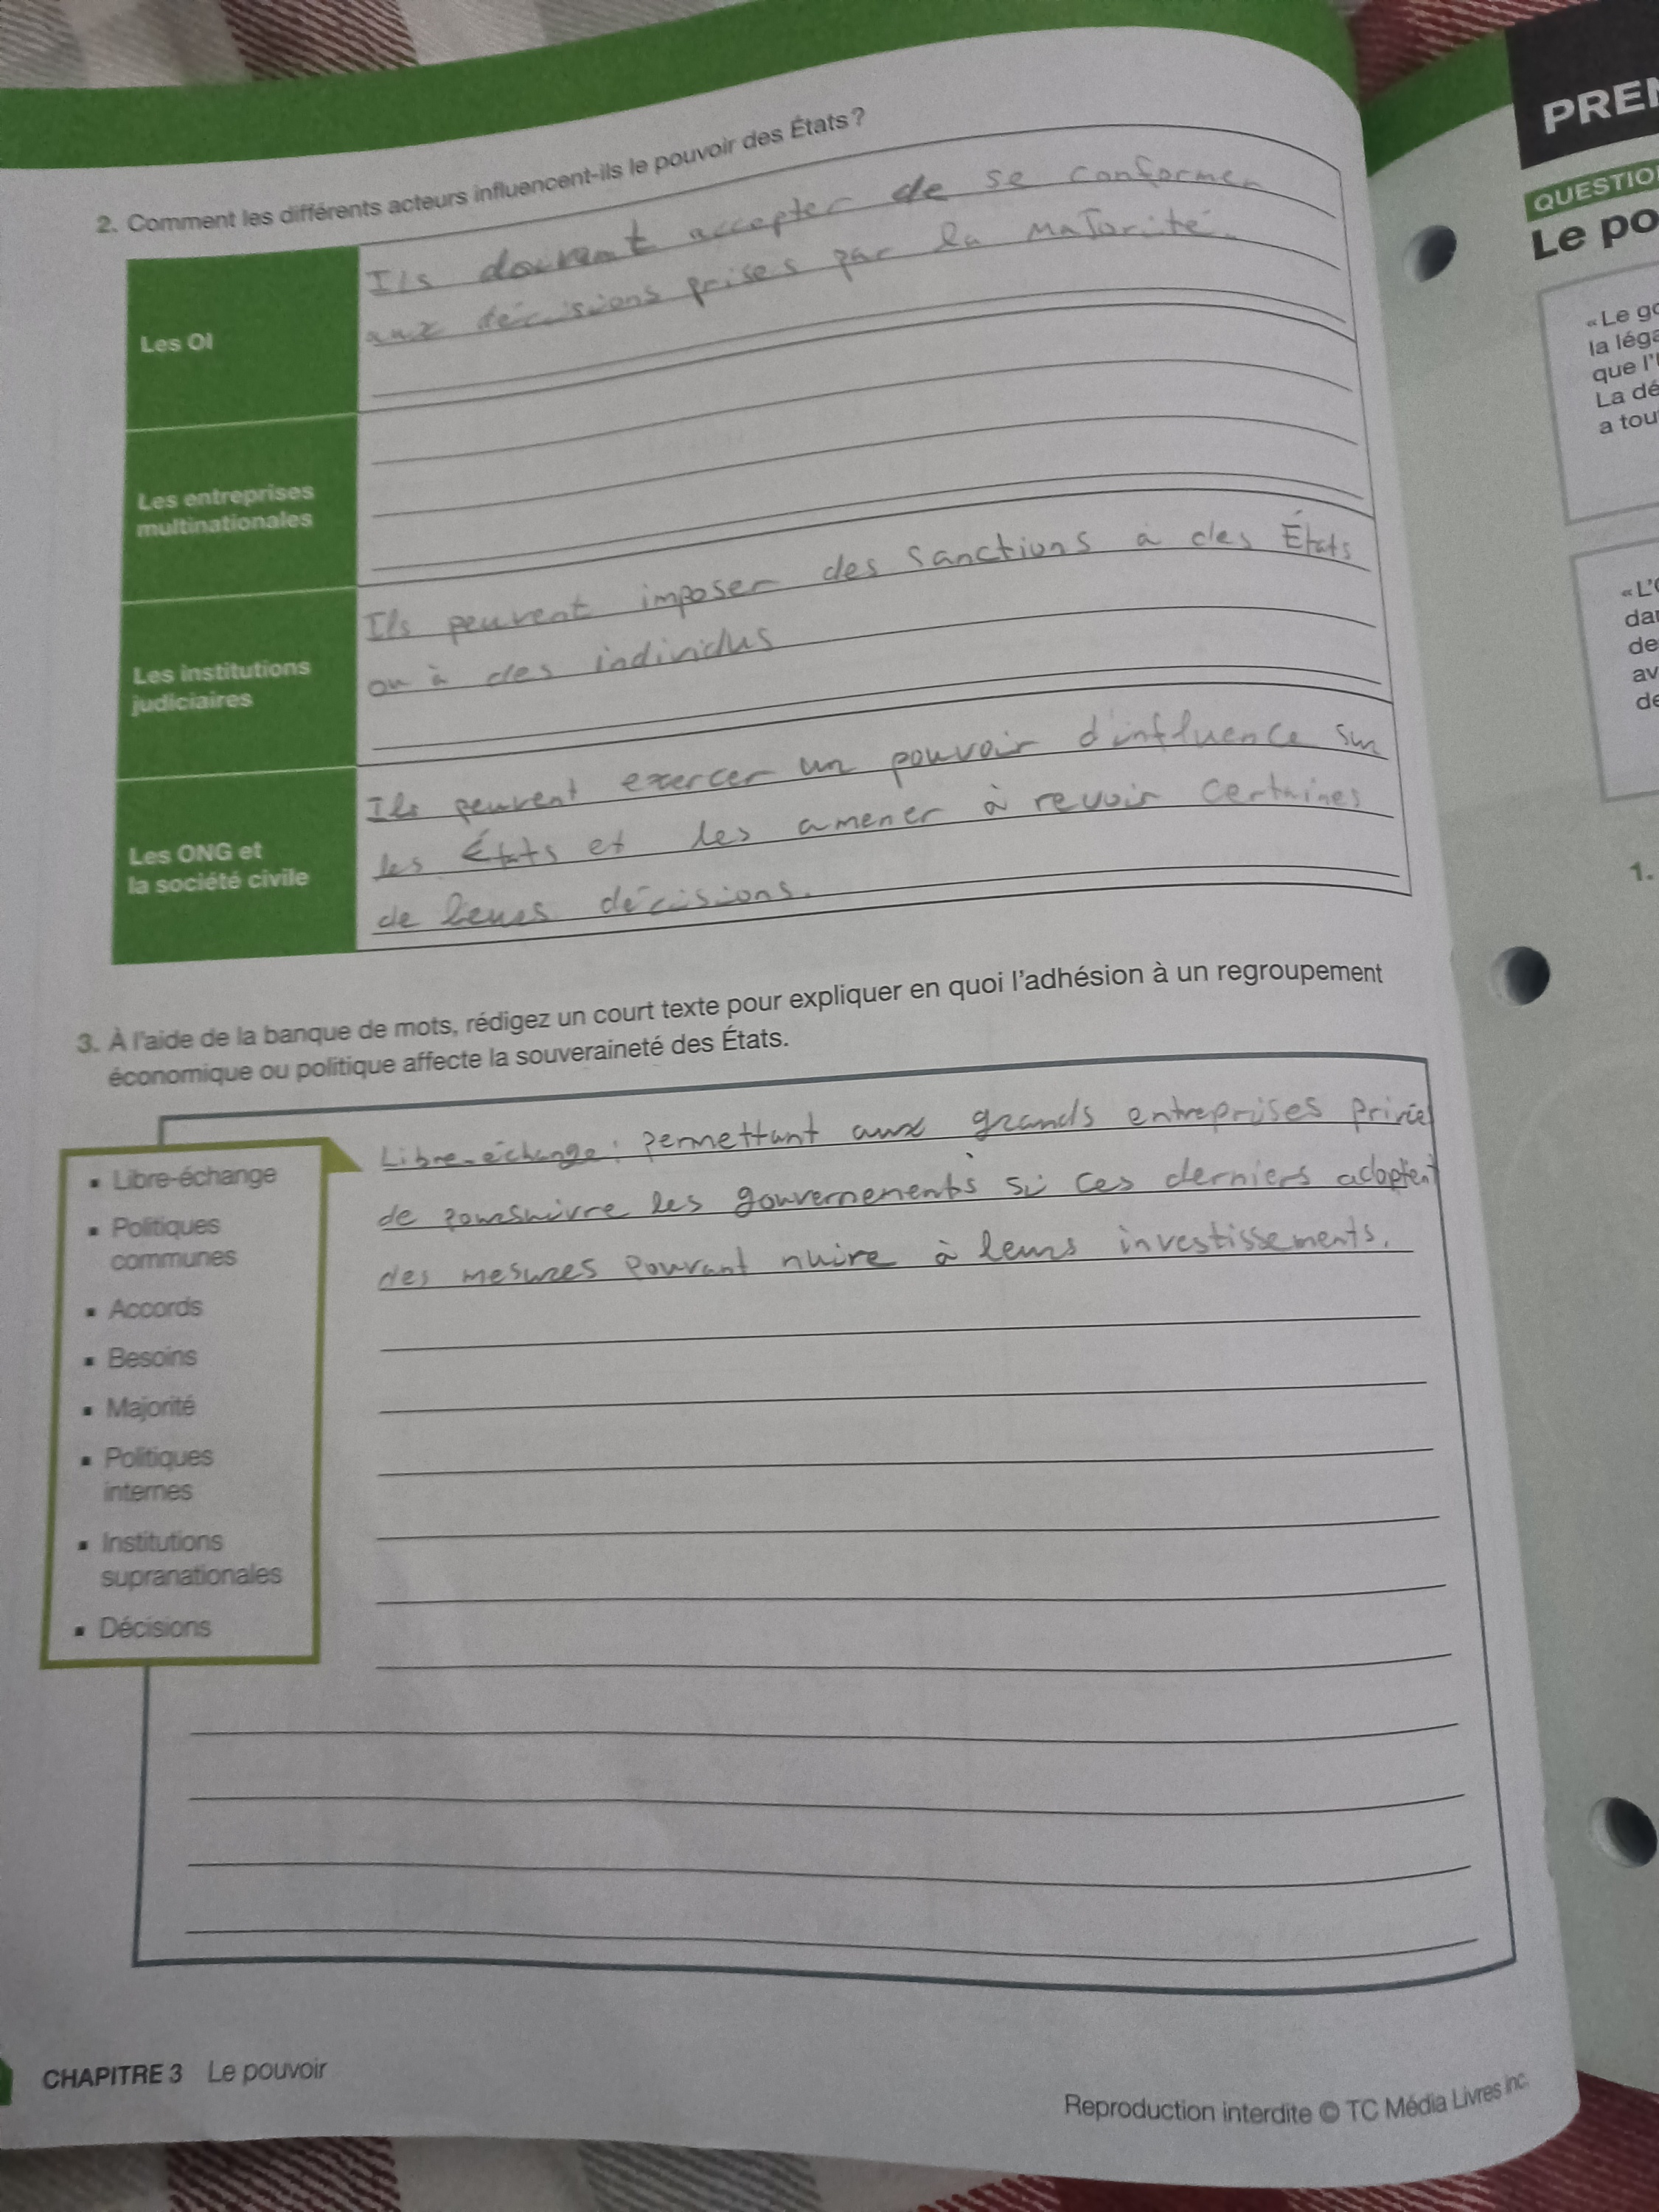 2. Comment les différents acteurs influencent-ils le pouvoir des États ?
Les OI
Ils doivent accepter de se conformer
aux décisions prises par la majorité.
Les entreprises
multinationales
Les institutions
judiciaires
Ils peuvent imposer des sanctions à des États
ou à des individus
Les ONG et
la société civile
Ils peuvent exercer un pouvoir d'influence sur
les États et les amener à revoir certaines
de leurs décisions.
3. À l'aide de la banque de mots, rédigez un court texte pour expliquer en quoi l'adhésion à un regroupement
économique ou politique affecte la souveraineté des États.
▪ Libre-échange
▪ Politiques
communes
▪ Accords
▪ Besoins
▪ Majorité
▪ Politiques
internes
▪ Institutions
supranationales
▪ Décisions
Libre-échange : permettant aux grands entreprises privées
de poursuivre les gouvernements si ces derniers adoptent
des mesures pouvant nuire à leurs investissements.
CHAPITRE 3 Le pouvoir
Reproduction interdite © TC Média Livres inc.
PREN
QUESTIO
Le po
«Le go
la léga
que l'
La dé
a tou
«L'
da
de
av
de
1.